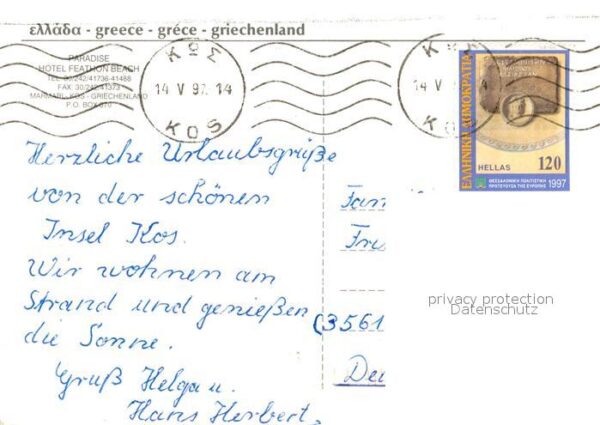 ελλάδα - greece - gréce - griechenland
PARADISE
HOTEL FEATHON BEACH
TEL. 02/242/41736-41468
FAX 30/242/41373
MARMARI - KOS - GRIECHENLAND
P.O. BOX 670
ΚΩΣ
14 V 97. 14
KOS
ΚΩΣ
14 V
KOS
ΕΛΛΗΝΙΚΗ ΔΗΜΟΚΡΑΤΙΑ
HELLAS 120
ΘΕΣΣΑΛΟΝΙΚΗ ΠΟΛΙΤΙΣΤΙΚΗ
ΠΡΩΤΕΥΟΥΣΑ ΤΗΣ ΕΥΡΩΠΗΣ 1997
Herzliche Urlaubsgrüße
von der schönen
Insel Kos.
Wir wohnen am
Strand und genießen
die Sonne.
Gruß Helga u.
Hans Herbert.
Fam
Fri
(3561
Deu
privacy protection
Datenschutz